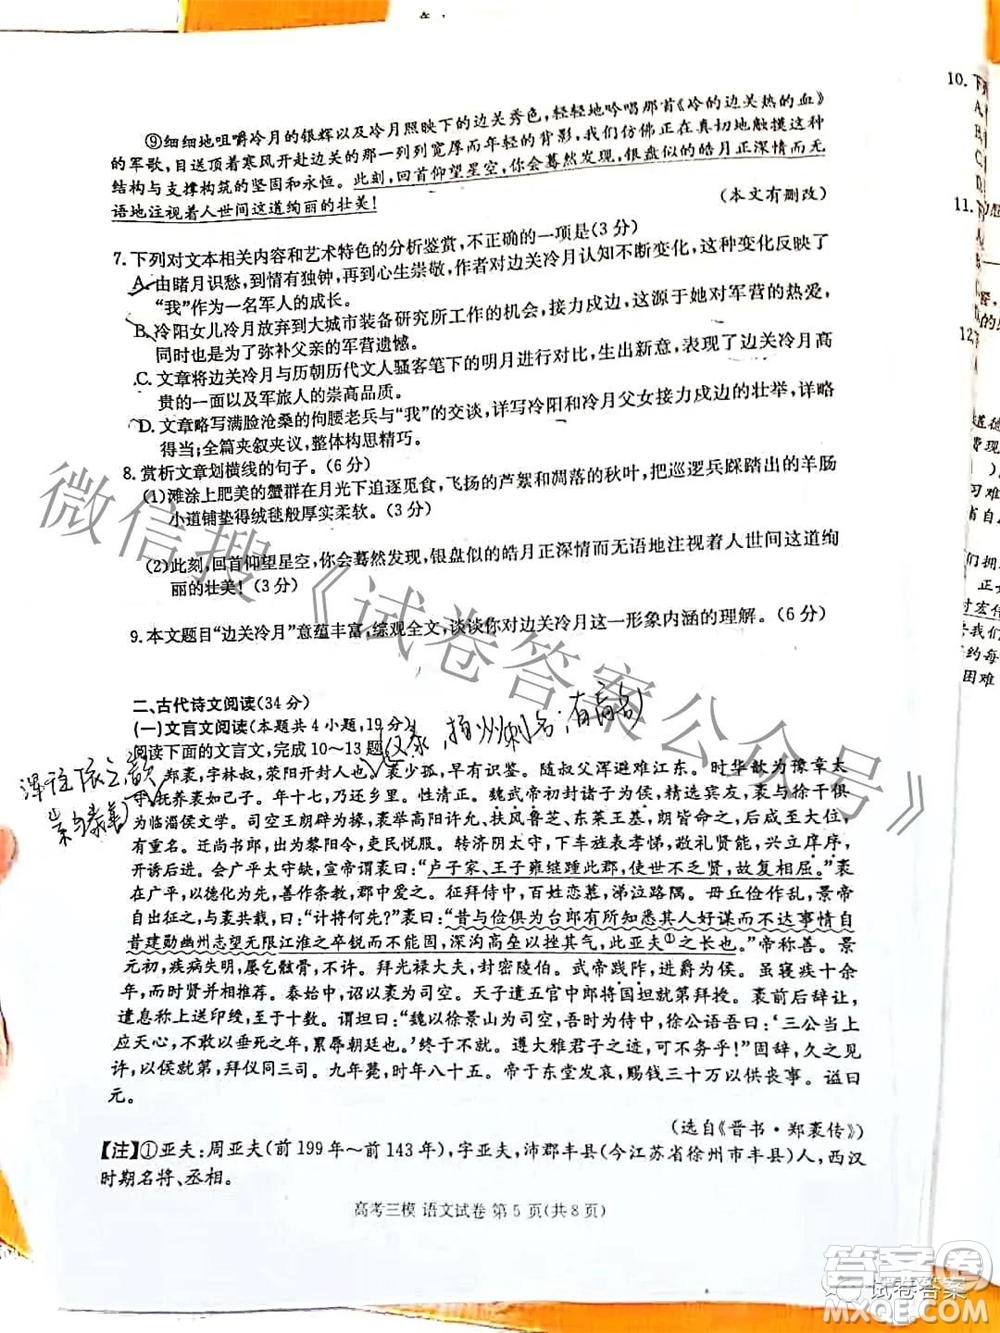 ⑨细细地咀嚼冷月的银辉以及冷月照映下的边关秀色,轻轻地吟唱那首《冷的边关热的血》
的军歌,目送顶着寒风开赴边关的那一列列宽厚而年轻的背影,我们仿佛正在真切地触摸这方
结构与支撑构筑的坚固和永恒。此刻,回首仰望星空,你会蓦然发现,银盘似的皓月正深情而无
语地注视着人世间这道绚丽的壮美!
(本文有删改)
7.下列对文本相关内容和艺术特色的分析鉴赏,不正确的一项是(3分)
A.由睹月识愁,到情有独钟,再到心生崇敬,作者对边关冷月认知不断变化,这种变化反映了
“我”作为一名军人的成长。
B.冷阳女儿冷月放弃到大城市装备研究所工作的机会,接力戍边,这源于她对军营的热爱,
同时也是为了弥补父亲的军营遗憾。
C.文章将边关冷月与历朝历代文人骚客笔下的明月进行对比,生出新意,表现了边关冷月高
贵的一面以及军旅人的崇高品质。
D.文章略写满脸沧桑的佝腰老兵与“我”的交谈,详写冷阳和冷月父女接力戍边的壮举,详略
得当;全篇夹叙夹议,整体构思精巧。
8.赏析文章划横线的句子。(6分)
(1)滩涂上肥美的蟹群在月光下追逐觅食,飞扬的芦絮和凋落的秋叶,把巡逻兵踩踏出的羊肠
小道铺垫得绒毯般厚实柔软。(3分)
(2)此刻,回首仰望星空,你会蓦然发现,银盘似的皓月正深情而无语地注视着人世间这道绚
丽的壮美!(3分)
9.本文题目“边关冷月”意蕴丰富,综观全文,谈谈你对边关冷月这一形象内涵的理解。(6分)
二、古代诗文阅读(34分)
(一)文言文阅读(本题共4小题,19分)
阅读下面的文言文,完成10~13题。
郑袤,字林叔,荥阳开封人也。袤少孤,早有识鉴。随叔父浑避难江东。时华歆为豫章太
守,抚养袤如己子。年十七,乃还乡里。性清正。魏武帝初封诸子为侯,精选宾友,袤与徐干俱
为临淄侯文学。司空王朗辟为掾,袤举高阳许允、扶风鲁芝、东莱王基,朗皆命之,后咸至大位,
有重名。迁尚书郎,出为黎阳令,吏民悦服。转济阴太守,下车旌表孝悌,敬礼贤能,兴立庠序,
开诱后进。会广平太守缺,宣帝谓袤曰:“卢子家、王子雍继踵此郡,使世不乏贤,故复相屈。”袤
在广平,以德化为先,善作条教,郡中爱之。征拜侍中,百姓恋慕,涕泣路隅。毌丘俭作乱,景帝
与袤共载,曰:“计将何先?”袤曰:“昔与俭俱为台郎有所知悉其人好谋而不达事情自
昔建勋幽州志望无限江淮之卒锐而不能固,深沟高垒以挫其气,此亚夫①之长也。”帝称善。景
元初,疾病失明,屡乞骸骨,不许。拜光禄大夫,封密陵伯。武帝践阼,进爵为侯。虽寝疾十余
年,而时贤并相推荐。泰始中,诏以袤为司空。天子遣五官中郎将国坦就第拜授。袤前后辞让,
遣息称上送印绶,至于十数。谓坦曰:“魏以徐景山为司空,吾时为侍中,徐公语吾曰:‘三公当上
应天心,不敢以垂死之年,累辱朝廷也。’终于不就。遵大雅君子之迹,可不务乎!”固辞,久之见
许,以侯就第,拜仪同三司。九年薨,时年八十五。帝于东堂发哀,赐钱三十万以供丧事。谥曰
元。
(选自《晋书·郑袤传》)
【注】①亚夫:周亚夫(前199年~前143年),字亚夫,沛郡丰县(今江苏省徐州市丰县)人,西汉
时期名将、丞相。
高考三模 语文试卷 第5页(共8页)
微信搜《试卷答案公众号》
10.下列
11.
12.
答案卷
试卷答案
MXQE.COM